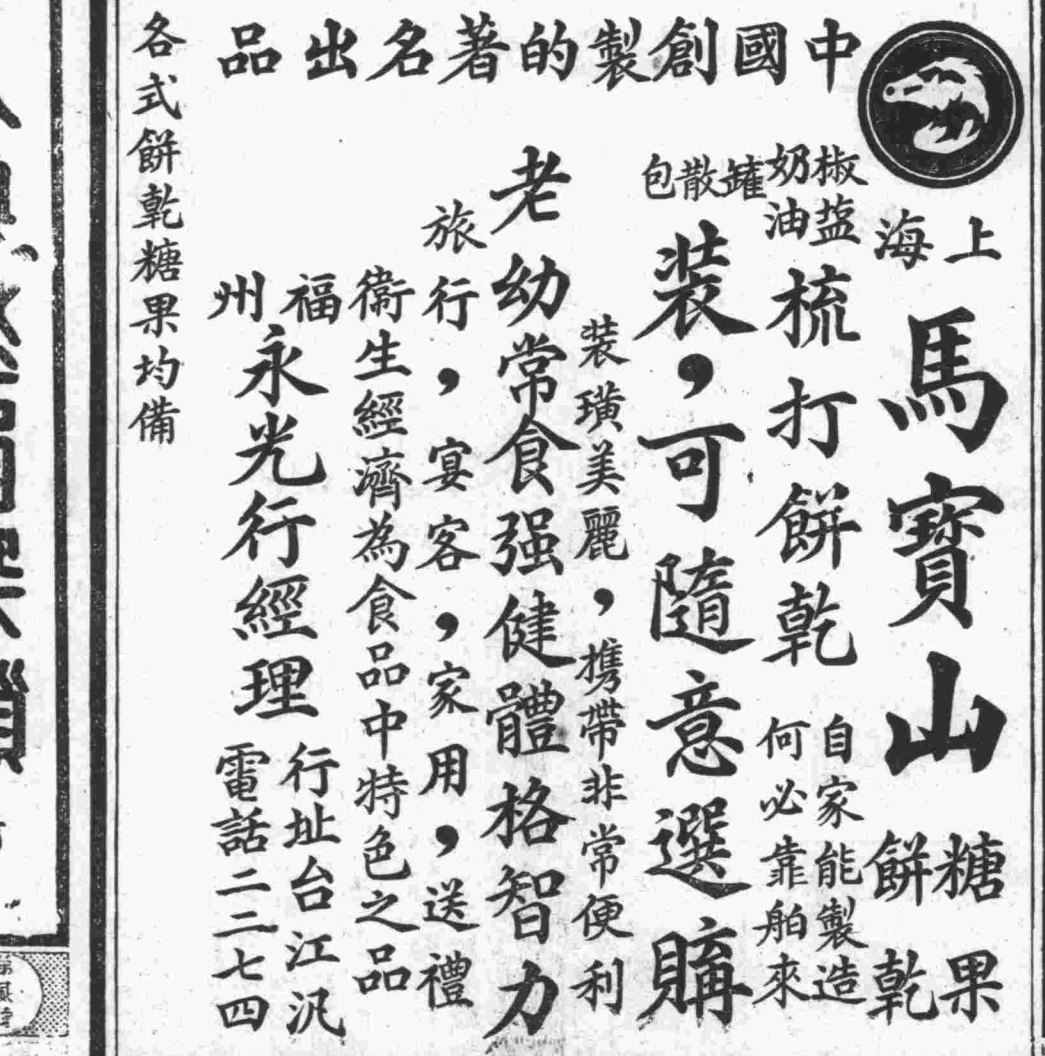 中國創製的著名出品
上海
馬寶山
糖果
餅乾
椒盐
奶油
梳打餅乾
自家能製造
何必靠舶來
罐
散
包
裝,可隨意選購
裝璜美麗,携帶非常便利
老幼常食强健體格智力
旅行,宴客,家用,送禮
衞生經濟為食品中特色之品
福州
永光行經理
行址台江汎
電話二二七四
各式餅乾糖果均備